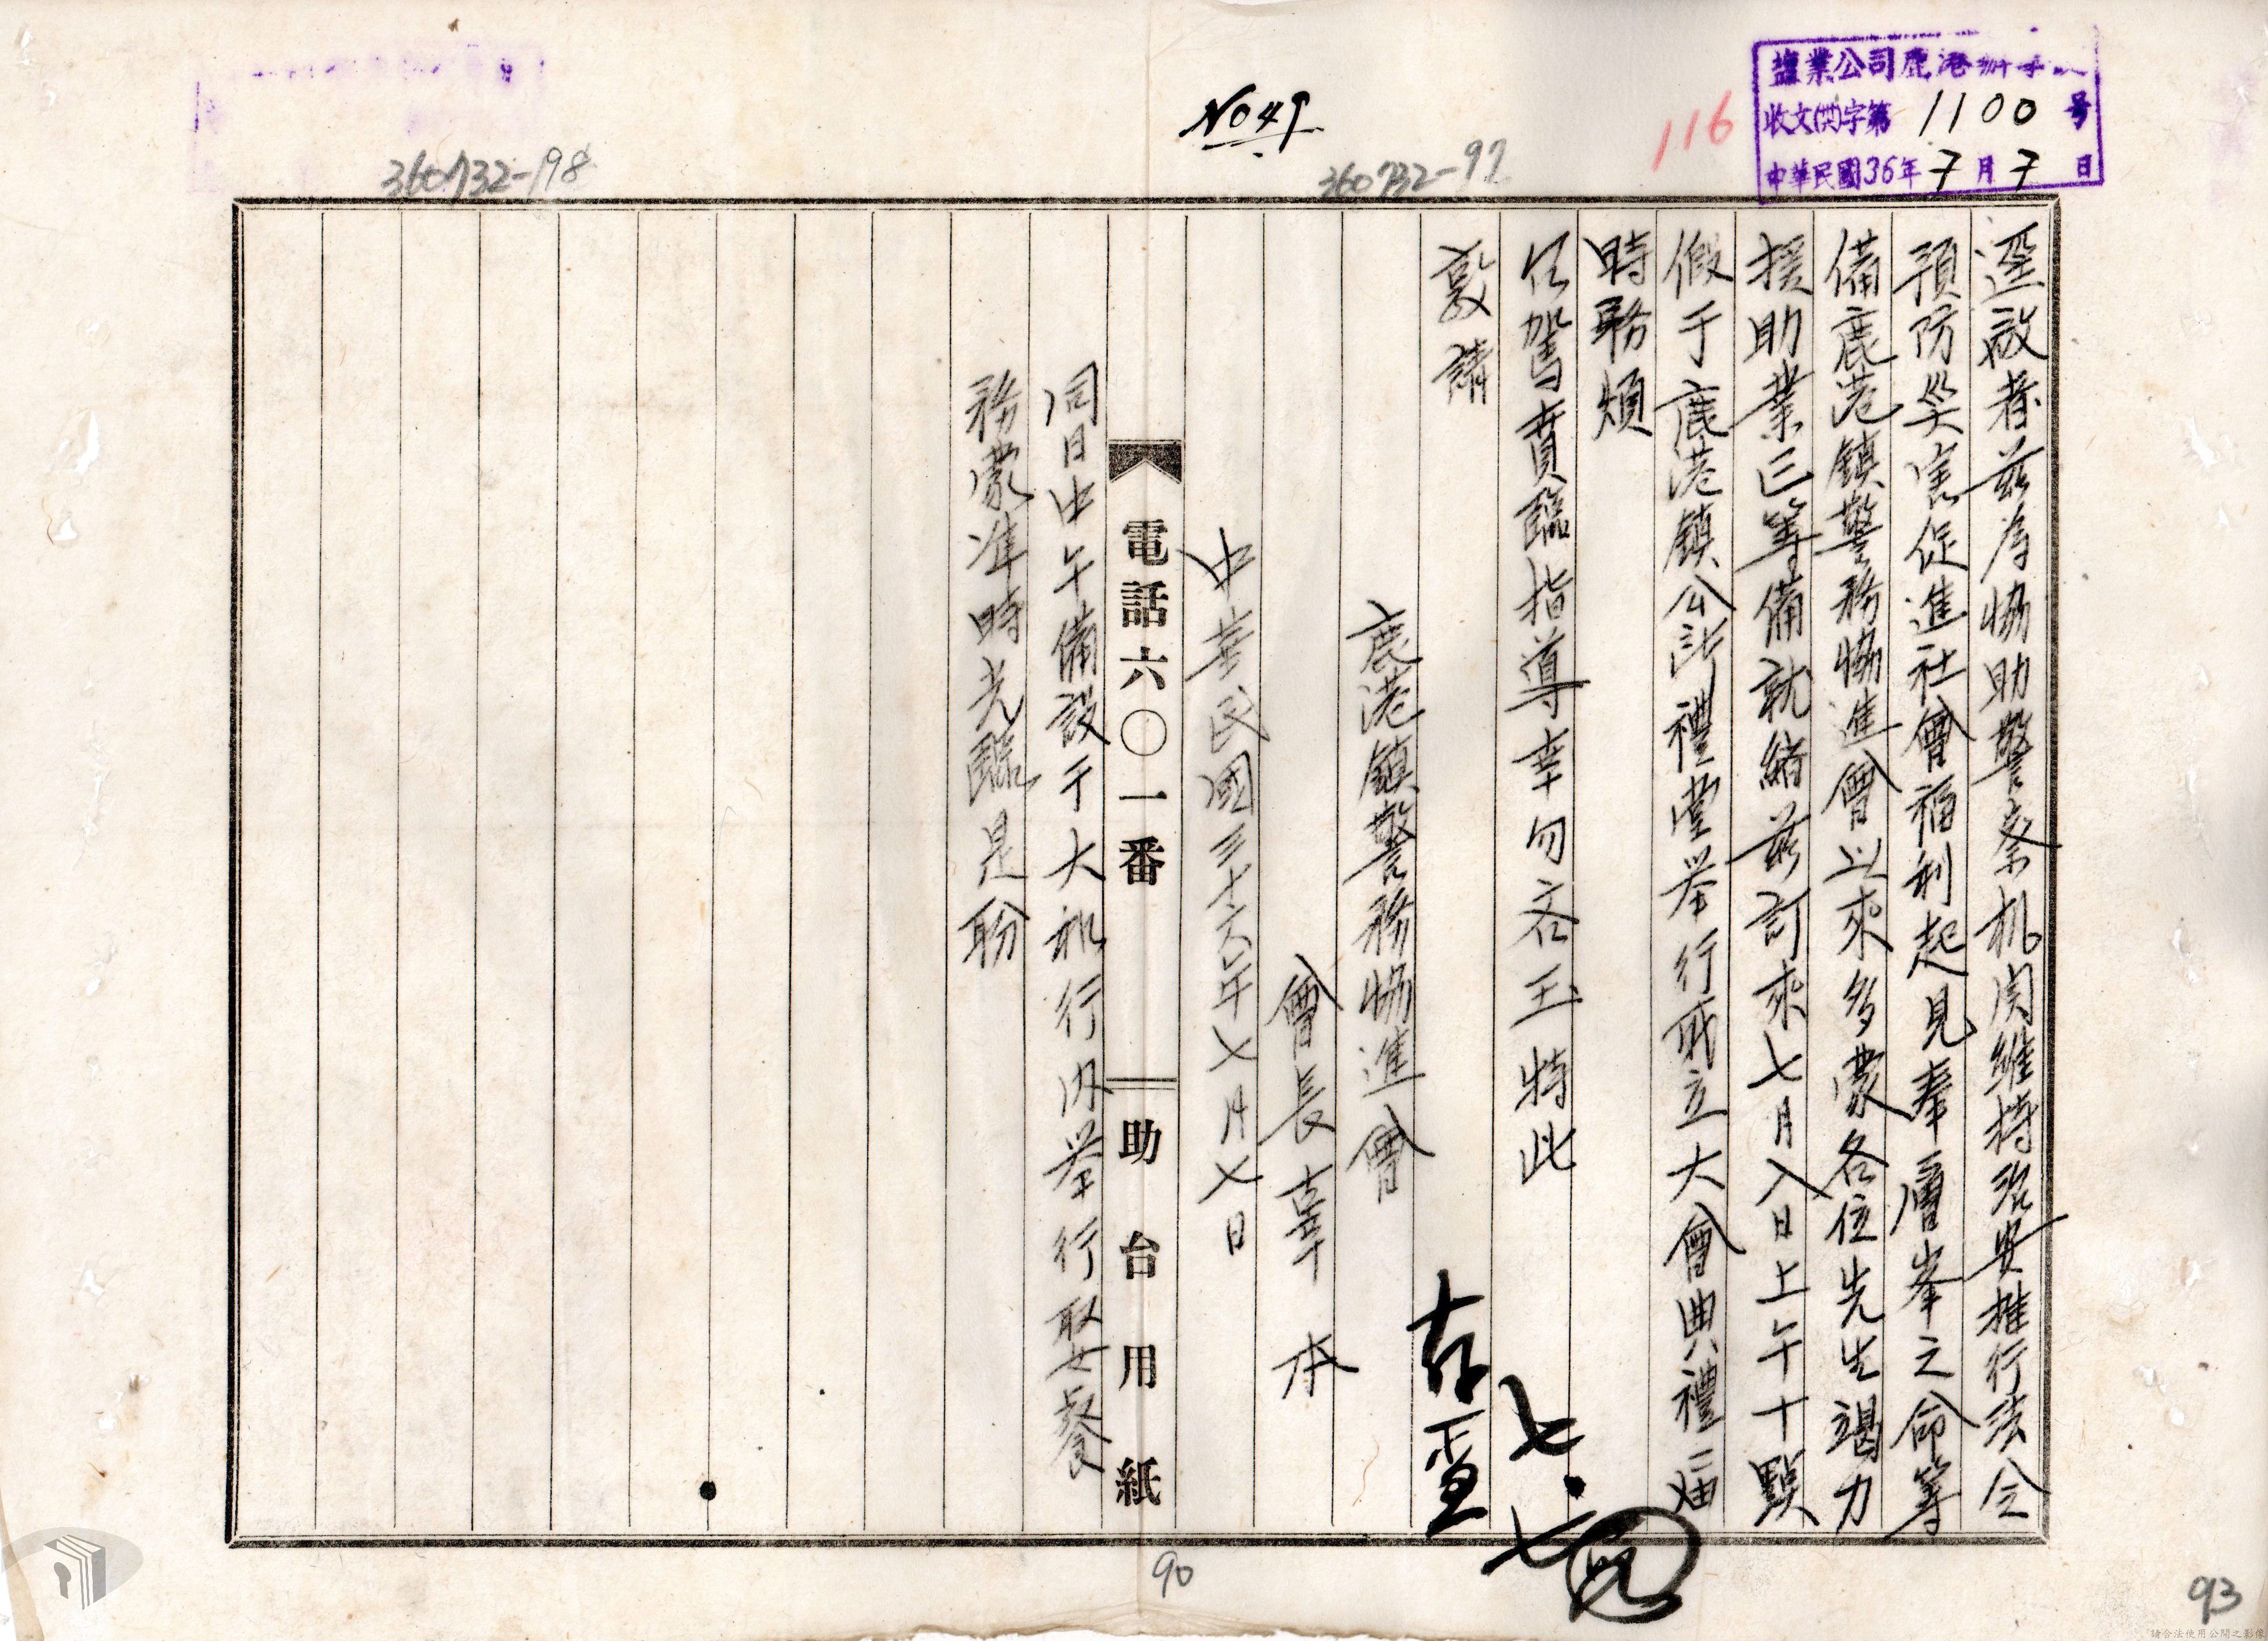 塩業公司鹿港辦事
收文(卅六)字第1100号
中華民國36年7月7日
116
No 49
360732-97
360732-98
逕啟者茲為協助警察机関維持治安推行法令
預防災害促進社會福利起見奉層峯之命籌
備鹿港鎮警務協進會以來多蒙各位先生竭力
援助業已籌備就緒茲訂來七月八日上午十點
假于鹿港鎮公所禮堂举行成立大會典禮屆
時務煩
任駕賁臨指導幸勿吝玉特此
敦請
鹿港鎮警務協進會
會長辜 本
中華民國三十六年七月七日
電話六〇一番 助台用紙
同日中午備設于大和行內举行聚餐
務蒙准時光臨是盼
七.七
90
93
請合法使用公開之影像